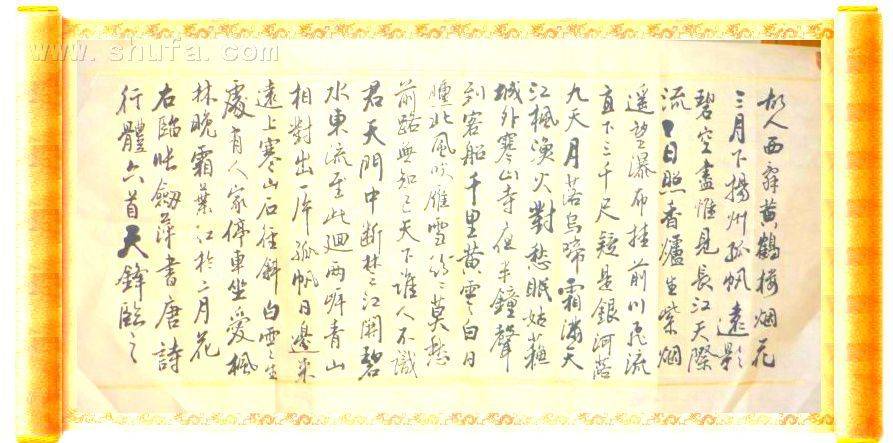 www.shufa.com
故人西辞黄鶴楼烟花
三月下揚州孤帆遠影
碧空盡惟見長江天際
流日照香爐生紫烟
遥望瀑布挂前川飛流
直下三千尺疑是銀河落
九天月落烏啼霜滿天
江楓漁火對愁眠姑蘇
城外寒山寺夜半鐘聲
到客船千里黄雲白日
曛北風吹雁雪紛々莫愁
前路無知己天下誰人不識
君天門中断楚江開碧
水東流至此迴兩岸青山
相對出一片孤帆日邊来
遠上寒山石徑斜白雲生
處有人家停車坐愛楓
林晚霜葉红於二月花
右臨張劍萍書唐詩
行體六首天鋒臨之